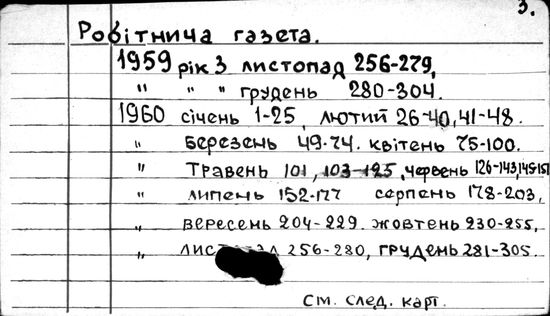 3.
Робітнича газета.
1959 рік 3 листопад 256-279,
" " " грудень 280-304.
1960 січень 1-25, лютий 26-40, 41-48.
" березень 49-74. квітень 75-100.
" травень 101, 103-125, червень 126-143, 145-151
" липень 152-177 серпень 178-203,
" вересень 204-229. жовтень 230-255,
" 256-280, грудень 281-305.
См. след. карт.